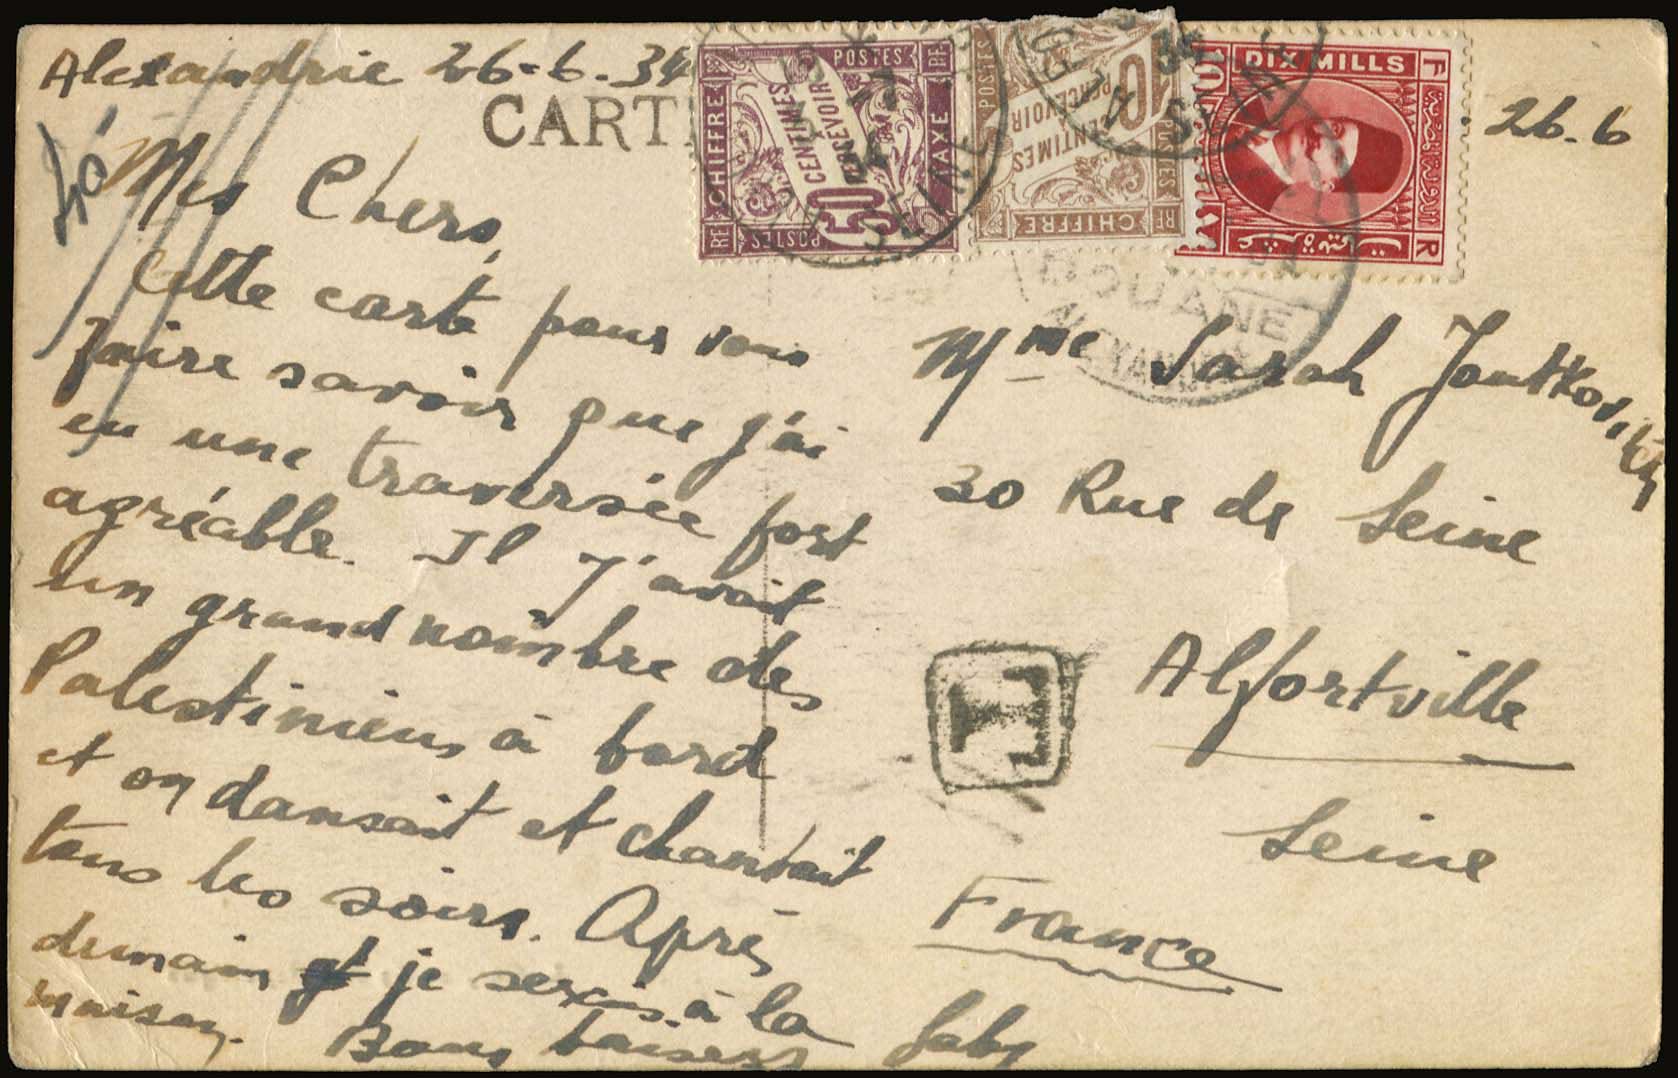 Alexandrie 26-6-34
26.6
CART
POSTES
RF
CHIFFRE
TAXE
50
CENTIMES
A PERCEVOIR
RF
POSTES
POSTES
10
CENTIMES
PERCEVOIR
POSTES
CHIFFRE
RF
DIX MILLS
F
R
10
١٠
DOUANE
T
Mes Chers,
Cette carte pour vous
faire savoir que j'ai
eu une traversée fort
agréable. Il y'avait
un grand nombre des
Palestiniens à bord
et on dansait et chantait
tous les soirs. Après
demain je serais à la
maison. Bons baisers
Gaby
Mme Sarah
30 Rue de Seine
Alfortville
Seine
France